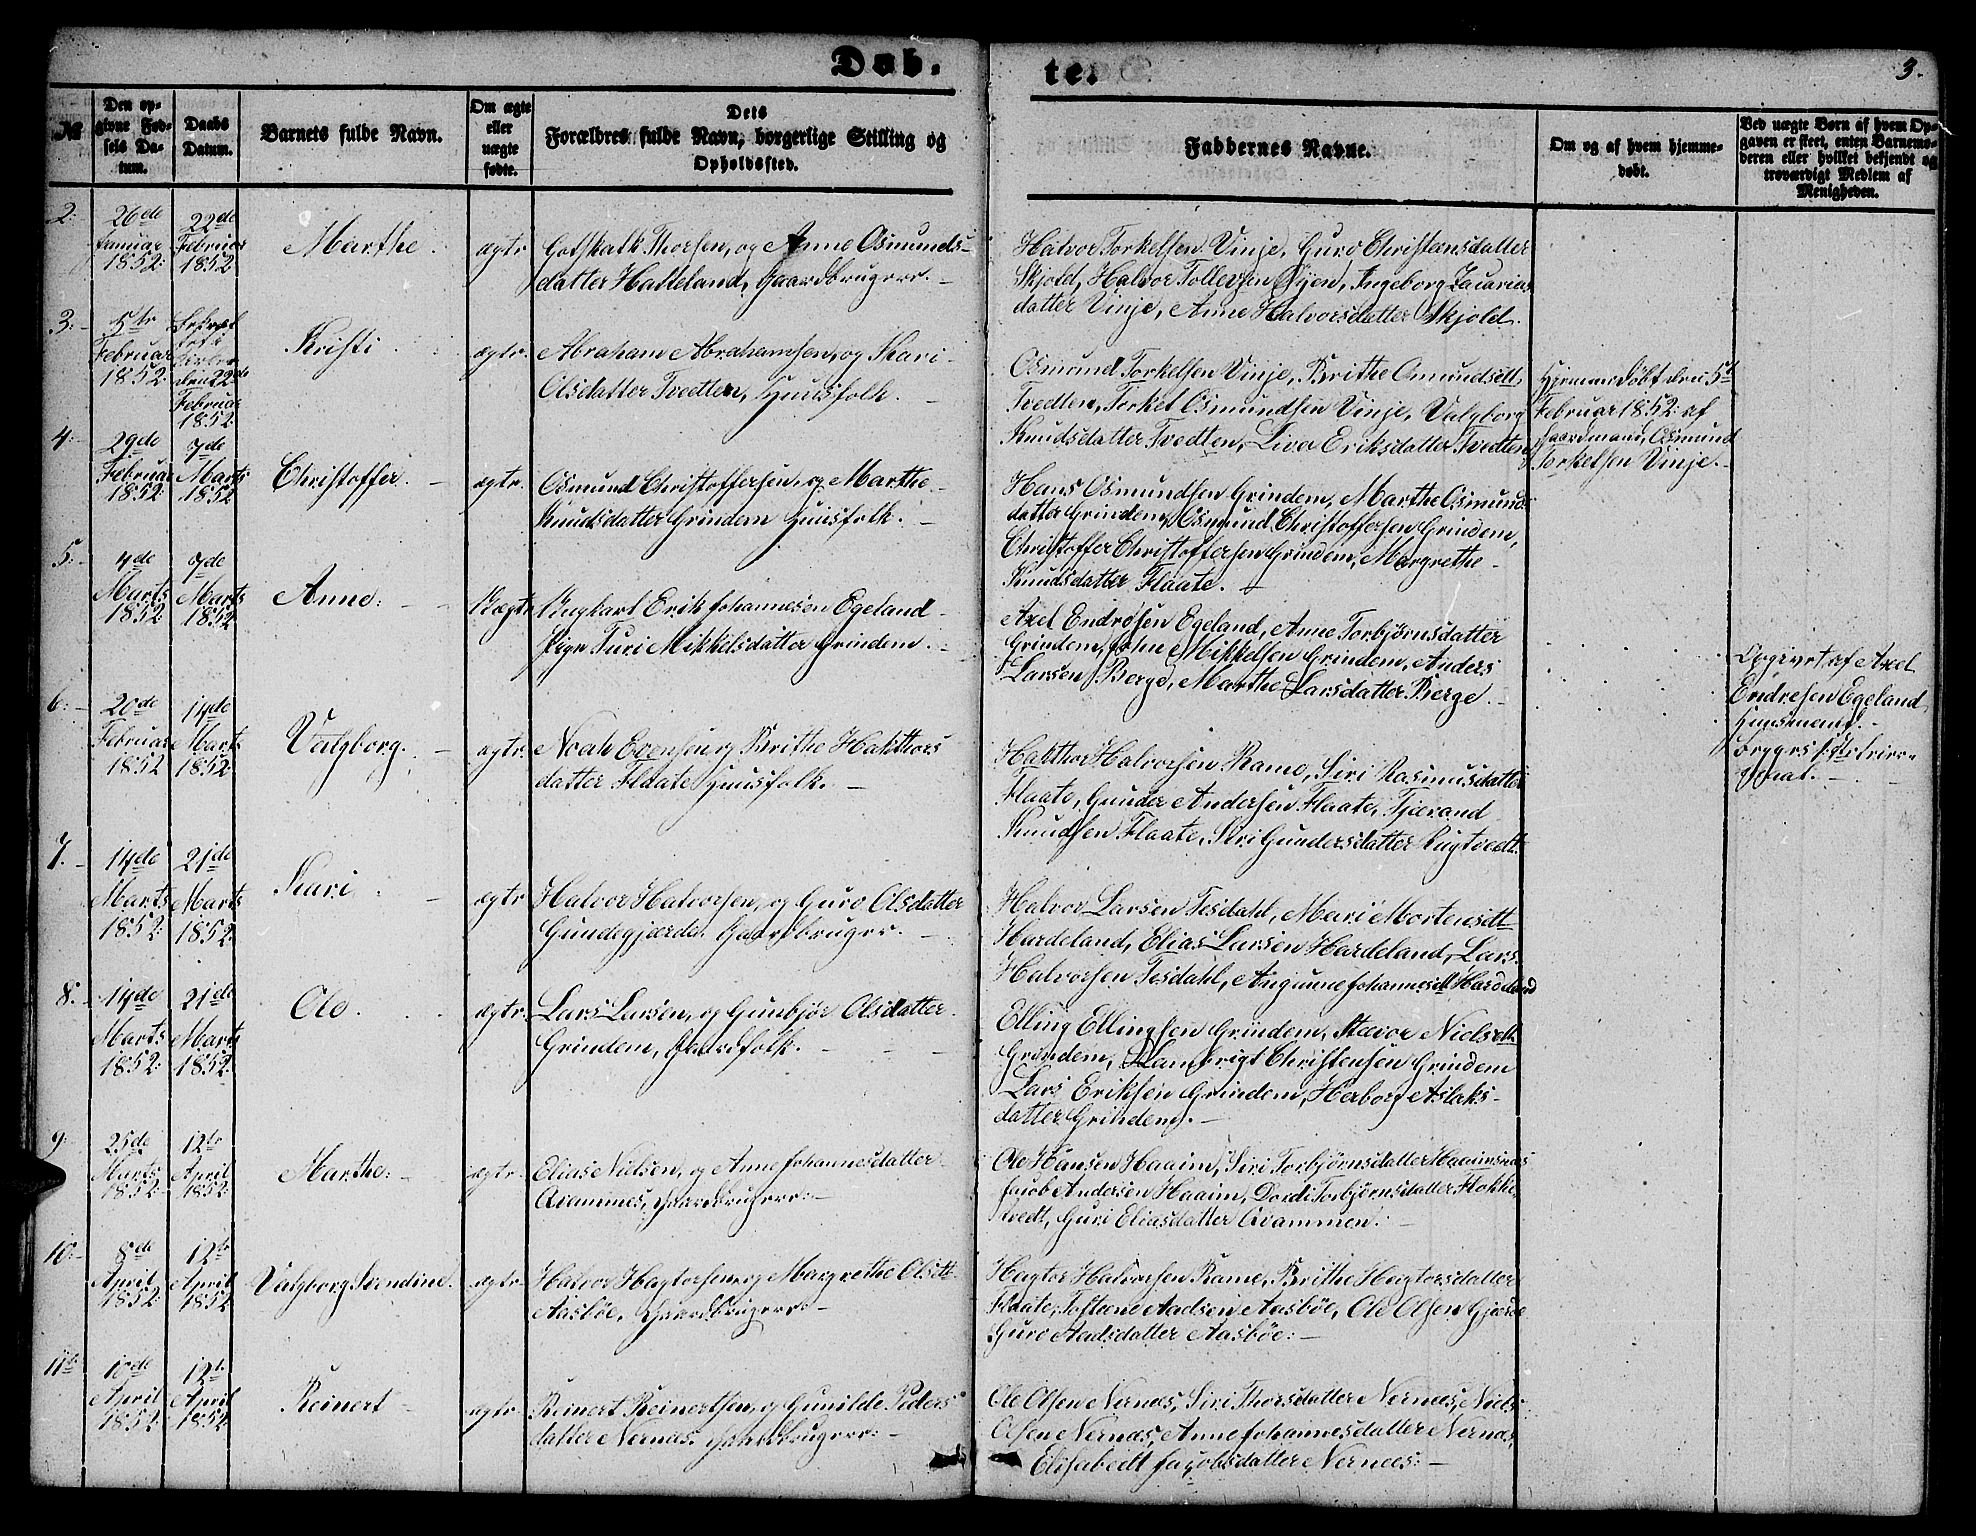 Døb.
te.
3.
№
Den op-
givne Fød-
sels Da-
tum.
Daabs
Datum.
Barnets fulde Navn.
Om ægte
eller
uægte
fødte.
Dets
Forældres fulde Navn, borgerlige Stilling og
Opholdssted.
Faddernes Navne.
Om og af hvem hjemme-
døbt.
Ved uægte Børn af hvem Op-
gaven er skeet, enten Barnemo-
deren eller hvilket bekjendt og
troværdigt Medlem af
Menigheden.
2:
26de
Januar
1852:
22de
Februar
1852
Marthe.
ægte
Gotskalk Thorsen, og Anne Osmunds-
datter Hatteland, Gaardbrugere.
Halvor Torkelsen Vinje, Guro Christensdatter
Skjold, Halvor Tollevsen Øijen, Ingeborg Zacarias
datter Vinje, Anne Halvorsdatter Skjold.
3:
5te
Februar
1852:
den 22de
Februar
1852:
Kristi
ægte.
Abraham Abrahamsen, og Kari
Olsdatter Tvedten, Huusfolk.
Osmund Torkelsen Vinje, Brithe Omundsdtt
Tvedten, Torkel Osmundsen Vinje, Valgborg
Knudsdatter Tvedten, Liva Eriksdatter Tvedten
Hjemmedøbt den 5te
Februar 1852: af
Gaardmand Osmund
Torkelsen Vinje.
4:
29de
Februar
1852
7de
Marts
1852
Christoffer.
ægte.
Osmund Christoffersen, og Marthe
Knudsdatter Grindem Huusfolk.
Hans Osmundsen Grindem, Marthe Osmunds
datter Grindem, Osmund Christoffersen Grindem,
Christoffer Christoffersen Grindem, Margrethe
Knudsdatter Flaate.
5:
4de
Marts
1852
7de
Marts
1852
Anne:
Uægte
Ungkarl Erik Johannesen Egeland
Pige Turi Mikkelsdatter Grindem.
Axel Endresen Egeland, Anne Torbjørnsdatter
Grindem, John Mikkelsen Grindem, Anders
Larsen Berge, Marthe Larsdatter Berge.
Opgivet af Axel
Endresen Egeland
Huusmand.
6:
20de
Februar
1852
14de
Marts
1852:
Valgborg.
ægte.
Noah Evensen og Brithe Hakthors
datter Flaate Huusfolk.
Hakthor Halvorsen Rame, Siri Rasmusdatter
Flaate, Gunder Andersen Flaate, Tjærand
Knudsen Flaate, Siri Gundersdatter Rugtvedt.
7.
14de
Marts
1852:
21de
Marts
1852:
Kari
ægte
Halvor Halvorsen, og Guro Olsdatter
Gundegjærde. Gaardbruger.
Halvor Larsen Tesdahl, Mari Mortensdtt
Hardeland, Elias Larsen Hardeland, Lars
Halvorsen Tesdahl, Angunne Johannesdtt Hardeland
8.
14de
Marts
1852:
21de
Marts
1852:
Ole.
ægte.
Lars Larsen, og Gunbjør Olsdatter
Grindem, Gaardfolk.
Elling Ellingsen Grindem, Stævor Nielsdtt
Grindem, Lambrigt Christensen Grindem
Lars Eriksen Grindem, Herborg Aslaks-
datter Grindem.
9:
25de
Marts
1852:
12te
April
1852:
Marthe:
ægte.
Elias Nielsen, og Anne Johannesdatter
Qvammen, Gaardbrugere:
Ole Hansen Haaim, Siri Torbjørnsdatter Haaimsnæs
Jacob Andersen Haaim, Dordi Torbjørnsdatter Flokke-
tvedt, Guri Eliasdatter Qvammen.
10:
8de
April
1852:
12te
April
1852:
Valgborg Svendine.
ægte
Halvor Hagtorsen, og Margrethe Olsdtt
Aasbøe, Gaardbrugere:
Hagtor Halvorsen Rame, Brithe Hagtorsdatter
Flaate, Tostene Aadsen Aasbøe, Ole Olsen Gjærde
Guro Aadsdatter Aasbøe:
11te
10de
April
1852:
12te
April
1852:
Reinert
ægte
Reinert Reinertsen, og Gunilde Peders
datter Nernæs. Gaardbrugere:
Ole Olsen Nernæs, Siri Thorsdatter Nernæs, Niels
Olsen Nernæs, Anne Johannesdatter Nernæs,
Elisabedt Jacobsdatter Nernæs: